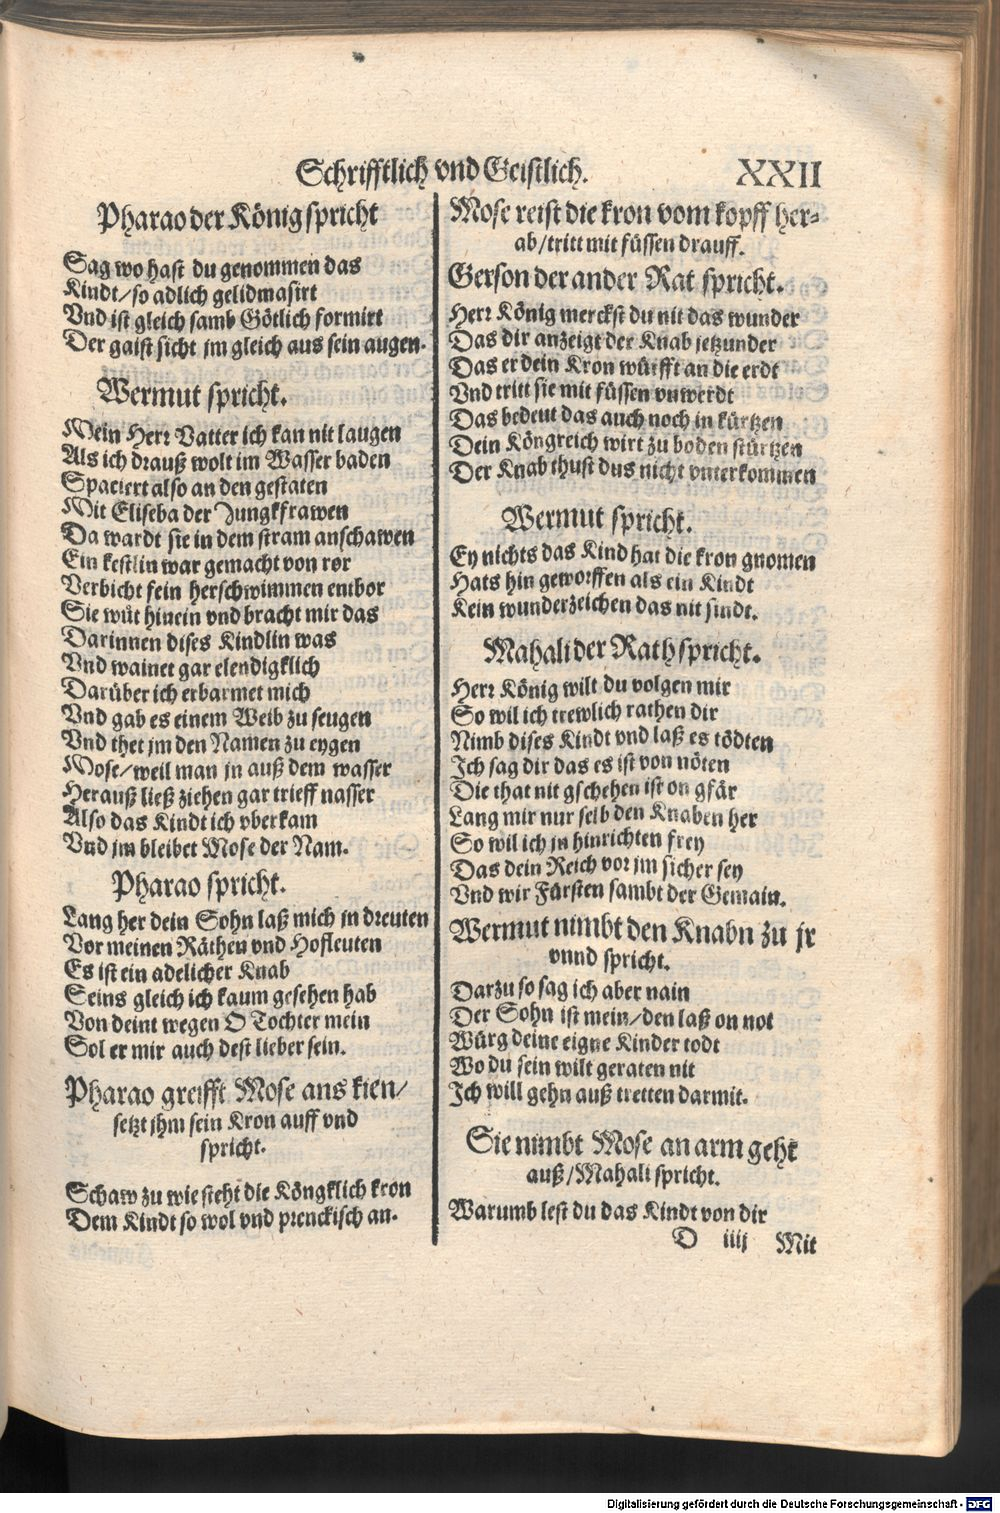 Schrifftlich vnd Geistlich. XXII
Pharao der König spricht
Sag wo hast du genommen das
Kindt/so adlich gelidmasirt
Vnd ist gleich samb Götlich formirt
Der gaist sicht jm gleich aus sein augen.
Wermut spricht.
Mein Herr Vatter ich kan nit laugen
Als ich drauß wolt im Wasser baden
Spaciert also an den gestaten
Mit Eliseba der Jungkfrawen
Da wardt sie in dem stram anschawen
Ein kestlin war gemacht von ror
Verbicht fein herschwimmen entbor
Sie wüt hinein vnd bracht mir das
Darinnen dises Kindlin was
Vnd wainet gar elendigklich
Darüber ich erbarmet mich
Vnd gab es einem Weib zu seugen
Vnd thet jm den Namen zu eygen
Mose/weil man jn auß dem wasser
Herauß ließ ziehen gar trieff nasser
Also das Kindt ich vberkam
Vnd jm bleibet Mose der Nam.
Pharao spricht.
Lang her dein Sohn laß mich jn dreuten
Vor meinen Räthen vnd Hofleuten
Es ist ein adelicher Knab
Seins gleich ich kaum gesehen hab
Von deint wegen O Tochter mein
Sol er mir auch dest lieber sein.
Pharao greifft Mose ans kien/
setzt jhm sein Kron auff vnd
spricht.
Schaw zu wie steht die Köngklich kron
Dem Kindt so wol vnd prenckisch an.
Mose reist die kron vom kopff her-
ab/tritt mit füssen drauff.
Gerson der ander Rat spricht.
Herr König merckst du nit das wunder
Das dir anzeigt der Knab jetzunder
Das er dein Kron würfft an die erdt
Vnd tritt sie mit füssen vnwerdt
Das bedeut das auch noch in kürtzen
Dein Köngreich wirt zu boden stürtzen
Der Knab thust dus nicht vnterkommen
Wermut spricht.
Ey nichts das Kind hat die kron gnomen
Hats hin geworffen als ein Kindt
Kein wunderzeichen das nit sindt.
Mahali der Rath spricht.
Herr König wilt du volgen mir
So wil ich trewlich rathen dir
Nimb dises Kindt vnd laß es tödten
Ich sag dir das es ist von nöten
Die that nit gschehen ist on gfär
Lang mir nur selb den Knaben her
So wil ich jn hinrichten frey
Das dein Reich vor jm sicher sey
Vnd wir Fürsten sambt der Gemain.
Wermut nimbt den Knabn zu jr
vnnd spricht.
Darzu so sag ich aber nain
Der Sohn ist mein/den laß on not
Würg deine eigne Kinder todt
Wo du sein wilt geraten nit
Ich will gehn auß tretten darmit.
Sie nimbt Mose an arm geht
auß/Mahali spricht.
Warumb lest du das Kindt von dir
D iiij Mit
Digitalisierung gefördert durch die Deutsche Forschungsgemeinschaft - DFG